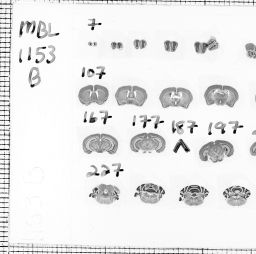 MBL
1153
B
7
107
167 177 187 197
227